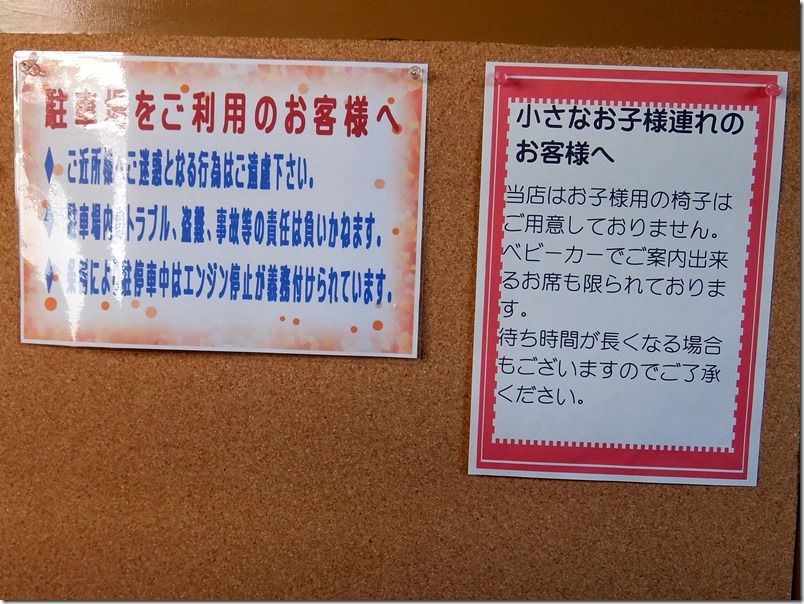 駐車場をご利用のお客様へ
ご近所様へご迷惑となる行為はご遠慮下さい。
駐車場内のトラブル、盗難、事故等の責任は負いかねます。
条例により駐停車中はエンジン停止が義務付けられています。
小さなお子様連れの
お客様へ
当店はお子様用の椅子は
ご用意しておりません。
ベビーカーでご案内出来
るお席も限られておりま
す。
待ち時間が長くなる場合
もございますのでご了承
ください。